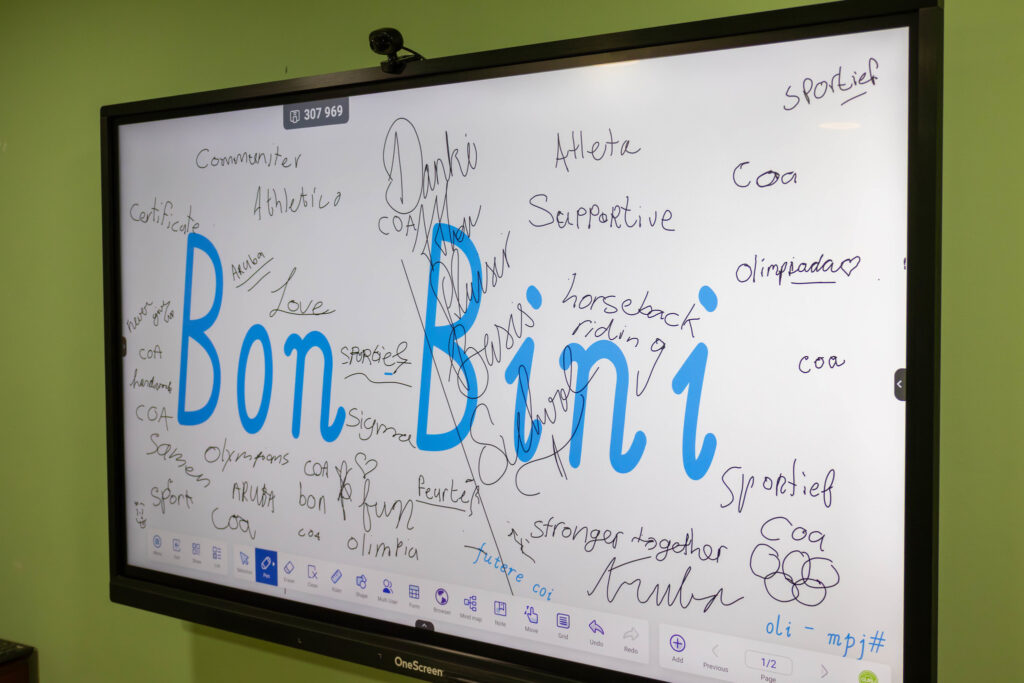 307 969
sportief
Communiter
Danki
Atleta
Coa
Athletico
Certificate
COA
Supportive
ARUBA
Love
olimpiada♡
horseback
riding
Bon Bini
SPORTief
COA
coa
COA
Sigma
Samen
Olympians
COA
Sportief
Sport
ARUBA
bon
fun
Coa
COA
olimpia
stronger together
Coa
Aruba
futere coi
oli - mpj#
Pen
Eraser
Clear
Shape
Multi User
Browser
Mind map
Note
Move
Grid
Undo
Redo
Add
Previous
1/2
Page
OneScreen